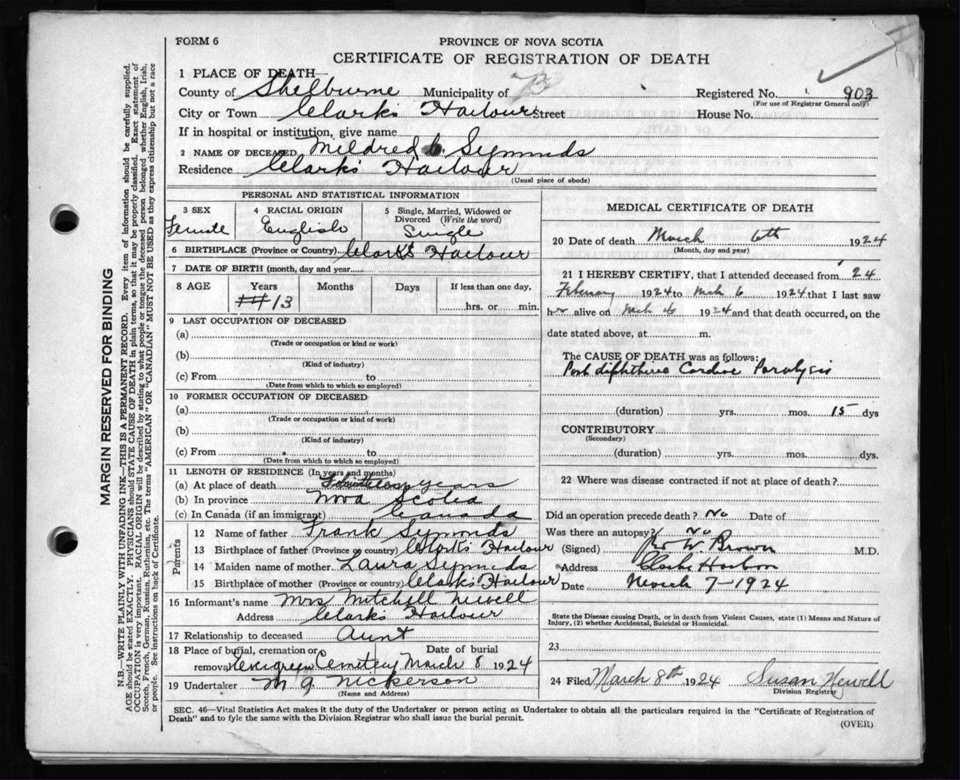 FORM 6
PROVINCE OF NOVA SCOTIA
CERTIFICATE OF REGISTRATION OF DEATH
1 PLACE OF DEATH—
County of Shelburne Municipality of B Registered No. 903
(For use of Registrar General only)
City or Town Clark's Harbour Street House No.
If in hospital or institution, give name
2 NAME OF DECEASED Mildred Symonds
Residence Clark's Harbour
(Usual place of abode)
PERSONAL AND STATISTICAL INFORMATION
3 SEX 4 RACIAL ORIGIN 5 Single, Married, Widowed or
Divorced (Write the word)
Female English Single
6 BIRTHPLACE (Province or Country) Clark's Harbour
7 DATE OF BIRTH (month, day and year)
8 AGE Years Months Days If less than one day,
13 hrs. or min.
9 LAST OCCUPATION OF DECEASED
(a)
(Trade or occupation or kind or work)
(b)
(Kind of industry)
(c) From to
(Date from which to which so employed)
10 FORMER OCCUPATION OF DECEASED
(a)
(Trade or occupation or kind or work)
(b)
(Kind of industry)
(c) From to
(Date from which to which so employed)
11 LENGTH OF RESIDENCE (In years and months)
(a) At place of death years
(b) In province Nova Scotia
(c) In Canada (if an immigrant) Canada
Parents
12 Name of father Frank Symonds
13 Birthplace of father (Province or country) Clark's Harbour
14 Maiden name of mother Laura Symonds
15 Birthplace of mother (Province or country) Clark's Harbour
16 Informant's name Mrs Mitchell Newell
Address Clark's Harbour
17 Relationship to deceased Aunt
18 Place of burial, cremation or Date of burial
removal Evergreen Cemetery March 8 1924
19 Undertaker M G Nickerson
(Name and Address)
MEDICAL CERTIFICATE OF DEATH
20 Date of death March 6th 1924
(Month, day and year)
21 I HEREBY CERTIFY, that I attended deceased from 24
February 1924 to Mch 6 1924 that I last saw
her alive on Mch 6 1924 and that death occurred, on the
date stated above, at m.
The CAUSE OF DEATH was as follows:
Post diphtheric Cardiac Paralysis
(duration) yrs. mos. 15 dys
CONTRIBUTORY
(Secondary)
(duration) yrs. mos. dys.
22 Where was disease contracted if not at place of death?
Did an operation precede death? No Date of
Was there an autopsy? No
(Signed) W Brown M.D.
Address Clarks Harbour
Date March 7-1924
State the Disease causing Death, or in death from Violent Causes, state (1) Means and Nature of
Injury, (2) whether Accidental, Suicidal or Homicidal.
23
24 Filed March 8th 1924 Susan Newell
Division Registrar
SEC. 46—Vital Statistics Act makes it the duty of the Undertaker or person acting as Undertaker to obtain all the particulars required in the "Certificate of Registration of
Death" and to fyle the same with the Division Registrar who shall issue the burial permit.
(OVER)
MARGIN RESERVED FOR BINDING
N.B.—WRITE PLAINLY WITH UNFADING INK—THIS IS A PERMANENT RECORD. Every item of information should be carefully supplied.
AGE should be stated EXACTLY. PHYSICIANS should STATE CAUSE OF DEATH in plain terms, so that it may be properly classified. Exact statement of
OCCUPATION is very important. RACIAL ORIGIN will be described by stating to what people or tongue the deceased person belonged whether English, Irish,
Scotch, French, German, Russian, Ruthenian, etc. The terms "AMERICAN" OR "CANADIAN" MUST NOT BE USED as they express citizenship but not a race
or people. See instructions on back of Certificate.